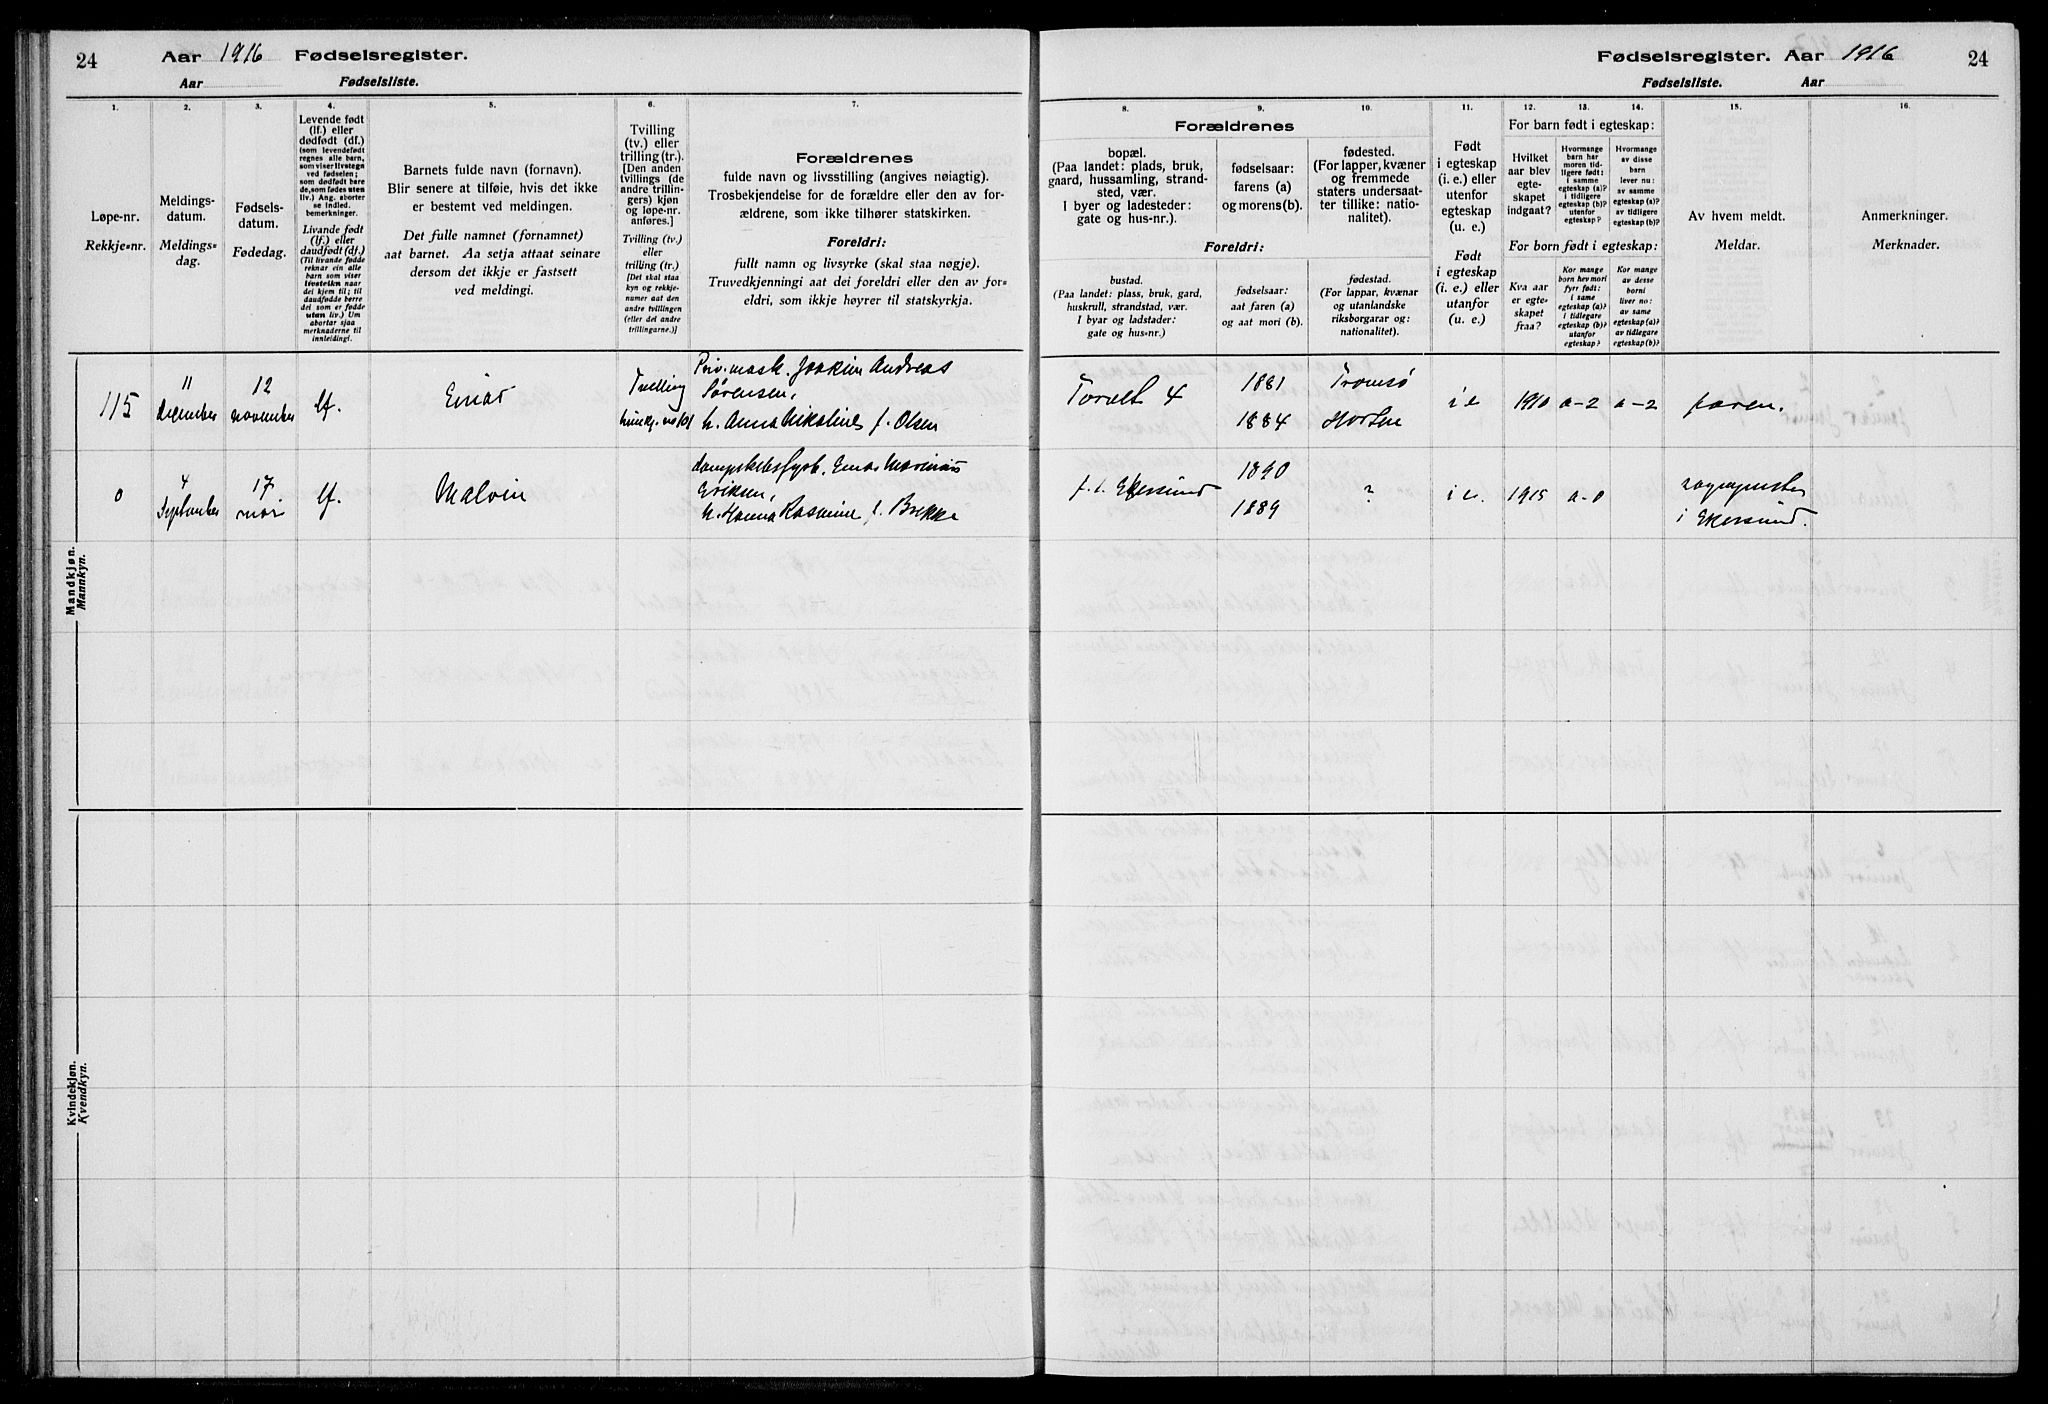 24
Aar 1916 Fødselsregister.
Aar Fødselsliste.
1.
2.
3.
4.
5.
6.
7.
Løpe-nr.
Rekkje-nr.
Meldings-
datum.
Meldings-
dag.
Fødsels-
datum.
Fødedag.
Levende født
(lf.) eller
dødfødt (df.)
(som levendefødt
regnes alle barn,
som viser livstegn
ved fødselen;
som dødfødt bare
de, som fødes uten
liv.) Ang. aborter
se indled.
bemerkninger.
Livande født
(lf.) eller
daudfødt (df.)
(Til livande fødde
reknar ein alle
barn som viser
livsteikn naar
dei kjem til; til
daudfødde berre
dei som er fødde
utan liv.) Um
abortar sjaa
merknaderne til
innleidingi.
Barnets fulde navn (fornavn).
Blir senere at tilføie, hvis det ikke
er bestemt ved meldingen.
Det fulle namnet (fornamnet)
aat barnet. Aa setja attaat seinare
dersom det ikkje er fastsett
ved meldingi.
Tvilling
(tv.) eller
trilling (tr.).
[Den anden
tvillings (de
andre trillin-
gers) kjøn
og løpe-nr.
anføres.]
Tvilling (tv.)
eller
trilling (tr.)
[Det skal staa
kyn og rekkje-
numer aat den
andre tvillingen
(eller dei andre
trillingarne.)]
Forældrenes
fulde navn og livsstilling (angives nøiagtig).
Trosbekjendelse for de forældre eller den av for-
ældrene, som ikke tilhører statskirken.
Foreldri:
fullt namn og livsyrke (skal staa nøgje).
Truvedkjenningi aat dei foreldri eller den av for-
eldri, som ikkje høyrer til statskyrkja.
Mandkjøn.
Mannkyn.
115
11
December
12
november
lf.
Einar
Tvelling
Priv. mask. Joakim Andreas
Sørensen,
h. Anna Nikoline f. Olsen
0
4
September
17
mai
lf.
Malvin
Einar Marinius
h. Hanna Rasmine f. Brekke
Kvindekjøn.
Kvendkyn.
Fødselsregister. Aar 1916
24
Fødselsliste. Aar
8.
9.
10.
11.
12.
13.
14.
15.
16.
Forældrenes
bopæl.
(Paa landet: plads, bruk,
gaard, hussamling, strand-
sted, vær.
I byer og ladesteder:
gate og hus-nr.).
fødselsaar:
farens (a)
og morens (b).
fødested.
(For lapper, kvæner
og fremmede
staters undersaat-
ter tillike: natio-
nalitet).
Foreldri:
bustad.
(Paa landet: plass, bruk, gard,
huskrull, strandstad, vær.
I byar og ladstader:
gate og hus-nr.).
fødselsaar:
aat faren (a)
og aat mori (b).
fødestad.
(For lappar, kvænar
og utanlandske
riksborgarar og:
nationalitet).
Født
i egteskap
(i. e.) eller
utenfor
egteskap
(u. e.)
Født
i egteskap
(i. e.) eller
utanfor
(u. e.)
For barn født i egteskap:
Hvilket
aar blev
egte-
skapet
indgaat?
Hvormange
barn har
moren tid-
ligere født:
i samme
egteskap (a)?
i tidligere
egteskap (b)?
utenfor
egteskap?
Hvormange
av disse
barn
lever nu:
av samme
egteskap (a)?
av tidligere
egteskap (b)?
For born født i egteskap:
Kva aar
er egte-
skapet
fraa?
Kor mange
born hev mori
fyrr født:
i same
egteskap (a)?
i tidlegare
egteskap (b)?
utanfor
egteskap?
Kor mange
av desse
borni
liver no:
av same
egteskap (a)?
av tidlegare
egteskap (b)?
Av hvem meldt.
Meldar.
Anmerkninger.
Merknader.
Torvet 4
1881
1884
Tromsø
Horten
i e
1910
a-2
a-2
faren.
f. i. Ekersund
1890
1889
?
i e.
1915
a-0
sogneprsten
i Ekersund.